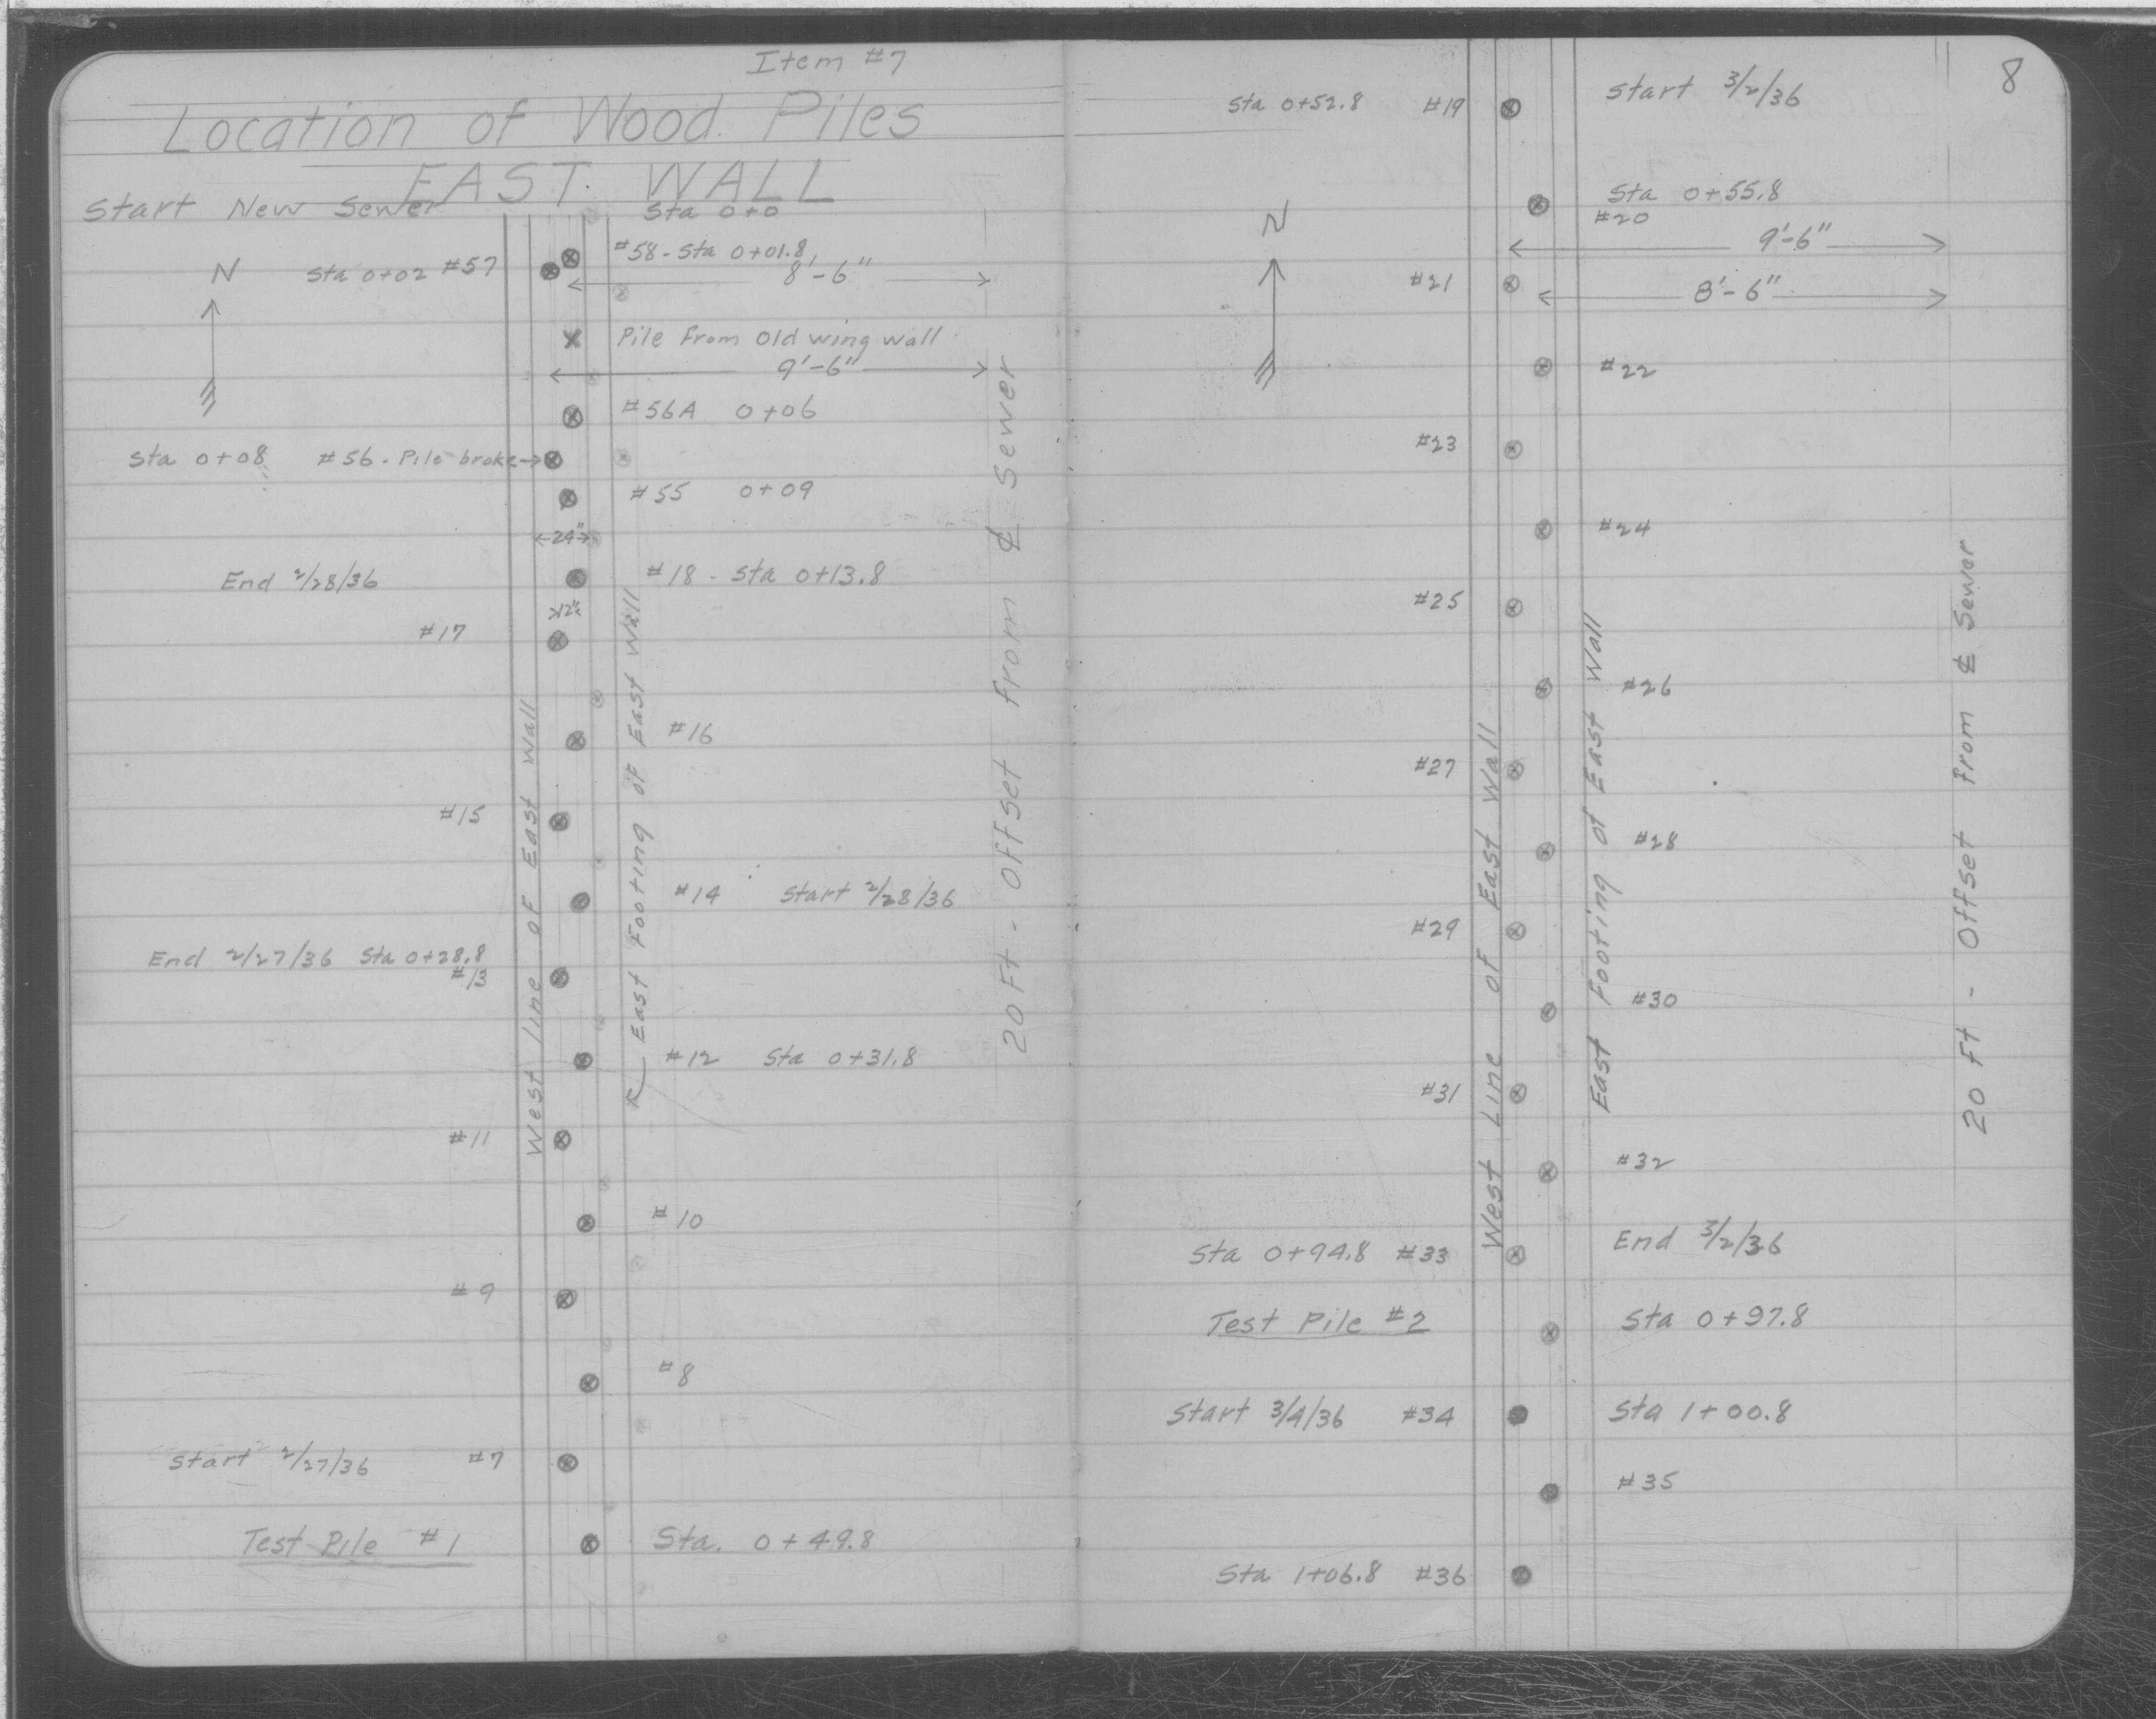 Item #7
Location of Wood Piles
EAST. WALL
Start New Sewer
Sta 0+0
N
Sta 0+02 #57
#58 - Sta 0+01.8
8'-6"
Pile From Old wing wall
9'-6"
#56A 0+06
Sta 0+08 #56 - Pile broke
#55 0+09
24"
End 2/28/36
#18 - Sta 0+13.8
12"
#17
#16
#15
#14 Start 2/28/36
End 2/27/36 Sta 0+28.8
#13
#12 Sta 0+31.8
#11
#10
#9
#8
Start 2/27/36 #7
Test Pile #1
Sta. 0+49.8
West line of East Wall
East Footing of East Wall
20 Ft - Offset From ℄ Sewer
8
Sta 0+52.8 #19
Start 3/2/36
N
Sta 0+55.8
#20
9'-6"
#21
8'-6"
#22
#23
#24
#25
#26
#27
#28
#29
#30
#31
#32
Sta 0+94.8 #33
End 3/2/36
Test Pile #2
Sta 0+97.8
Start 3/4/36 #34
Sta 1+00.8
#35
Sta 1+06.8 #36
West Line of East Wall
East Footing of East Wall
20 Ft - Offset From ℄ Sewer